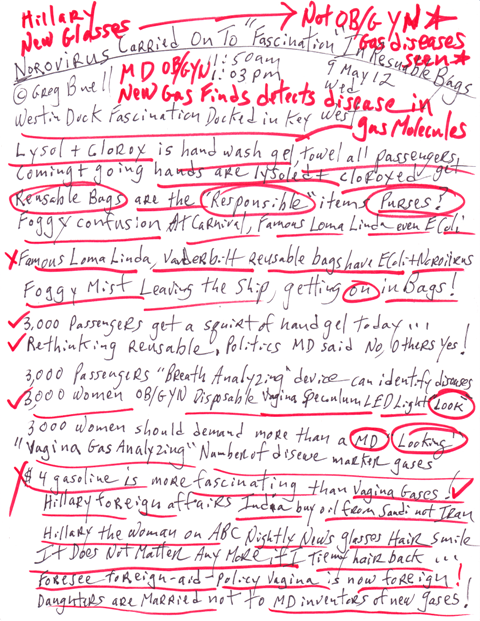 Hillary
New Glasses
Not OB/GYN
Gas diseases
seen
Norovirus Carried On To "Fascination" In Resuable Bags
© Greg Buell
MD OB/GYN
1:50am
1:03pm
9 May 12
Wed
New Gas Finds detects disease in
gas Molecules
Westin Dock Fascination Docked in Key West
Lysol + Clorox is hand wash gel, towel all passengers,
Coming + going hands are lysolect cloroxed, get
Reusable Bags are the "Responsible" items Purses?
Foggy confusion At Carnival, Famous Loma Linda even EColi
Famous Loma Linda, Vanderbilt reusable bags have EColi + Norovirus
Foggy Mist Leaving the Ship, getting on in Bags!
3,000 Passengers get a squirt of hand gel today...
Rethinking Reusable, Politics MD said No, Others Yes!
3,000 Passengers "Breath Analyzing" device can identify diseases
3,000 Women OB/GYN Disposable Vagina Speculum LED Light Look
3,000 Women should demand more than a MD Looking!
"Vagina Gas Analyzing" Number of disease marker gases
$4 gasoline is more fascinating than Vagina Gases!
Hillary foreign affairs India buy oil from Saudi not Iran
Hillary the Woman on ABC Nightly News glasses Hair Smile
It Does Not Matter Any More, if I Tie my hair back ...
Foresee foreign-aid-Policy vagina is now foreign!
Daughters are Married not to MD inventors of new gases!